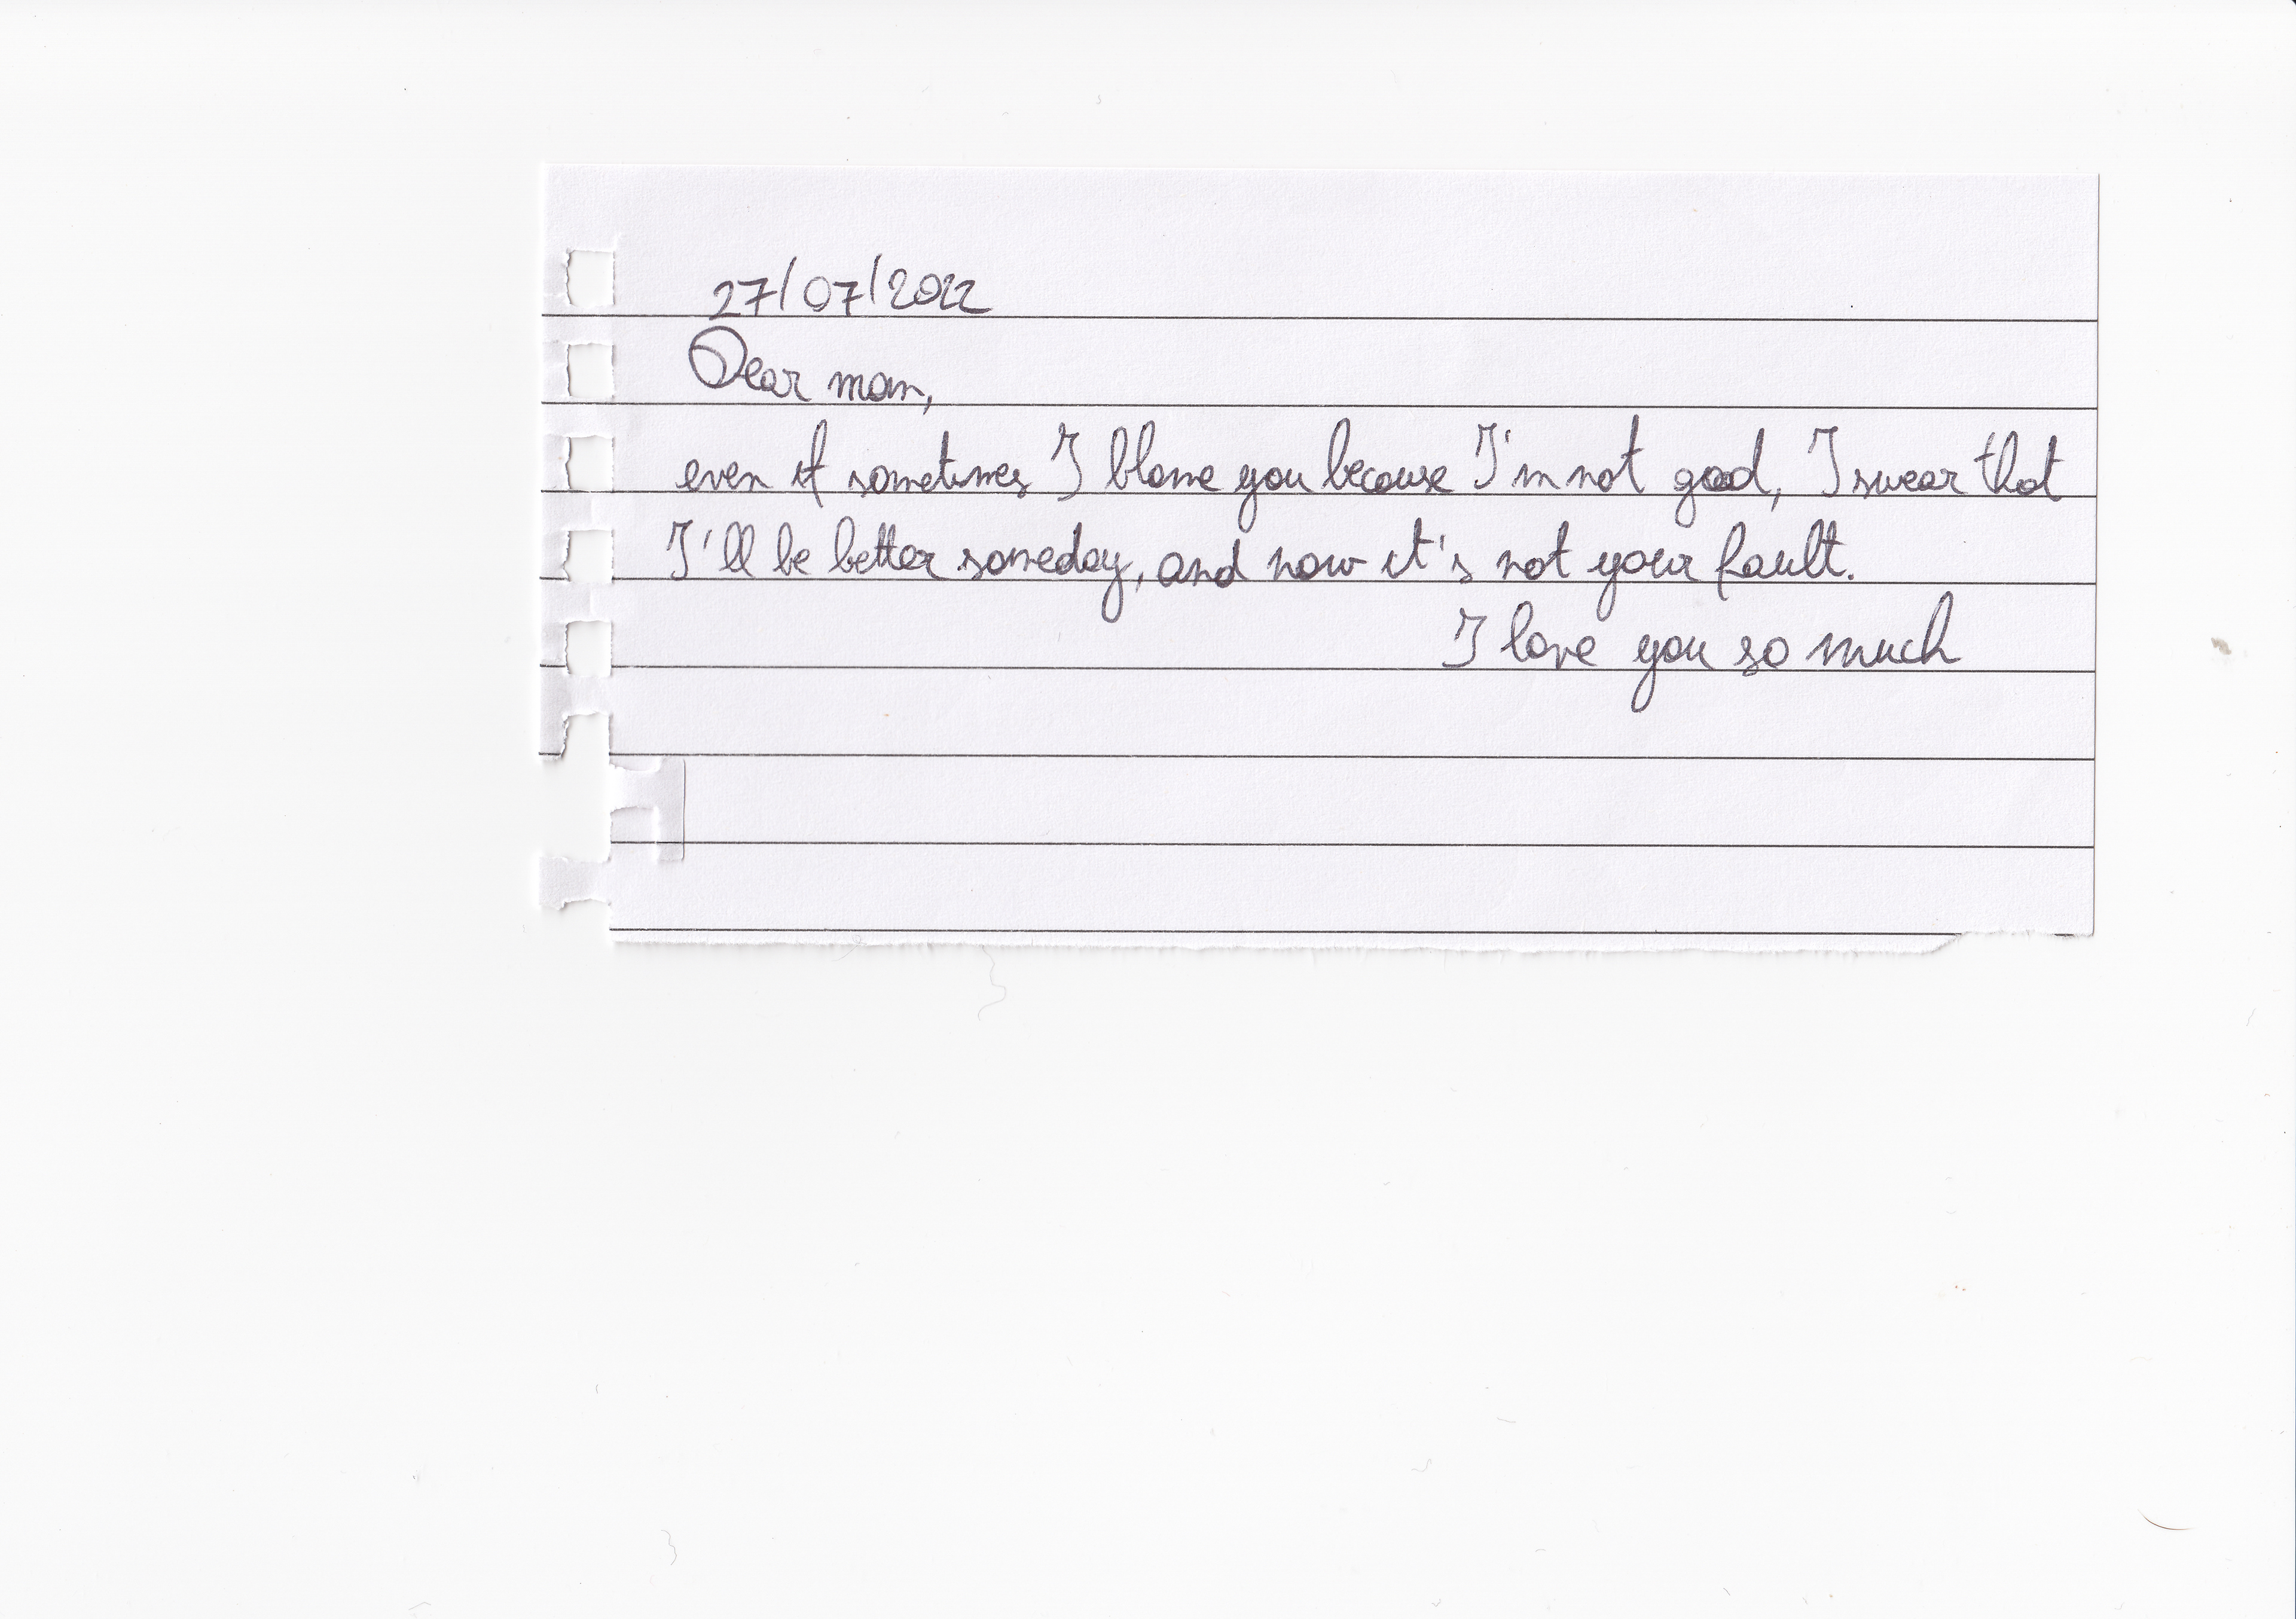 27/07/2022
Dear mom,
even if sometimes I blame you because I'm not good, I swear that
I'll be better someday, and now it's not your fault.
I love you so much